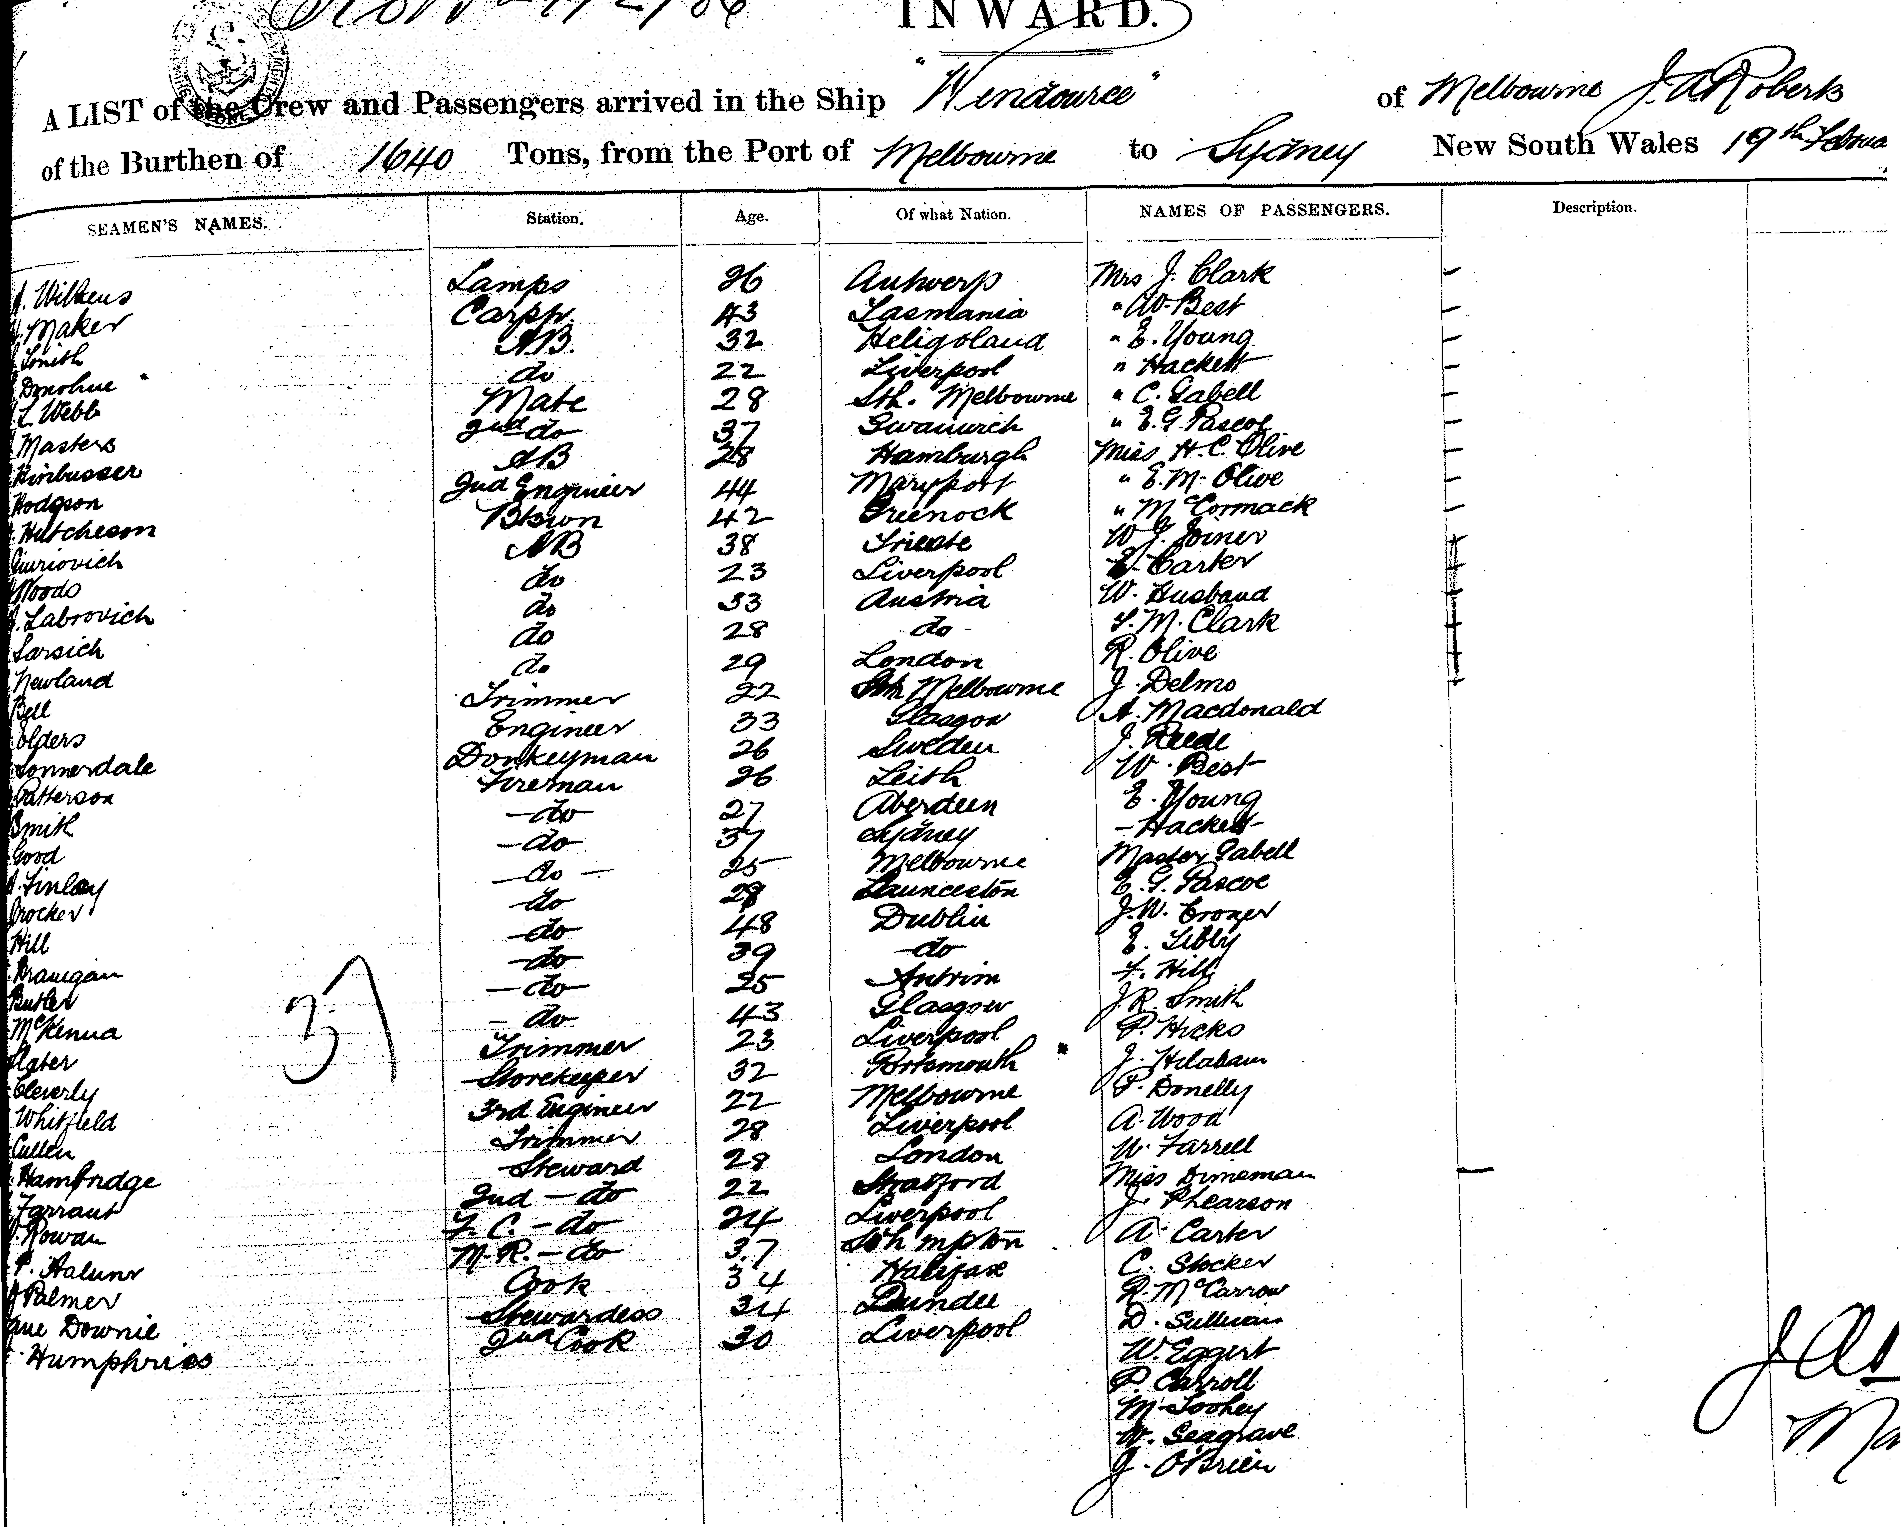 INWARD.
A LIST of the Crew and Passengers arrived in the Ship "Wendouree" of Melbourne J. A. Roberts
of the Burthen of 1640 Tons, from the Port of Melbourne to Sydney New South Wales 19th Februa
SEAMEN'S NAMES. Station. Age. Of what Nation. NAMES OF PASSENGERS. Description.
Wilkens Lamps 26 Antwerp Mrs J. Clark
Maker Carptr. 43 Tasmania " W. Best
Smith A.B. 32 Heligoland " E. Young
Donohue do 22 Liverpool " Hackett
L Webb Mate 28 Sth. Melbourne " C. Gabell
Masters 2nd do 37 Swanwich " E. G. Pascoe
AB 28 Hamburgh Miss H. C. Olive
Hodgson 2nd Engineer 44 Maryport " E. M. Olive
Hutcheson Btswn 42 Greenock " McCormack
AB 38 Trieste W. J. Joiner
Woods do 23 Liverpool E. Carter
Labrovich do 33 Austria W. Husband
Larsich do 28 do M. Clark
Newland do 29 London R. Olive
Bell Trimmer 22 Sth Melbourne J. Delmo
olders Engineer 33 Glasgow A. Macdonald
Lonnerdale Donkeyman 26 Sweden J. Reede
Patterson Fireman 26 Leith W. Best
Smith do 27 Aberdeen E. Young
Good do 37 Sydney Hackett
Finlay do 25 Melbourne Master Gabell
Crocker do Launceston E. G. Pascoe
Hill do 48 Dublin J. W. Croxer
Branigan do 39 do E. Libby
Butler do 25 Antrim F. Hill
McKenna do 43 Glasgow J. R. Smith
Slater Trimmer 23 Liverpool P. Hicks
Cleverly Storekeeper 32 Portsmouth J.
Whitfield 3rd Engineer 22 Melbourne P. Donelly
Cullen Trimmer 28 Liverpool A. Wood
Hambridge Steward 28 London W. Farrell
Farrant 2nd - do 22 Stratford Miss Dineman
Rowan F. C. - do 24 Liverpool J. Phearson
M. R. - do 37 Sth mpton A. Carter
Palmer Cook 34 Halifax C. Stocker
ane Downie Stewardess 34 Dundee R. McCarrow
Humphries 2nd Cook 30 Liverpool D. Sullivan
W. Eggert
P. Carroll
M. Toohey
W. Seagrave
J. O'Brien
37